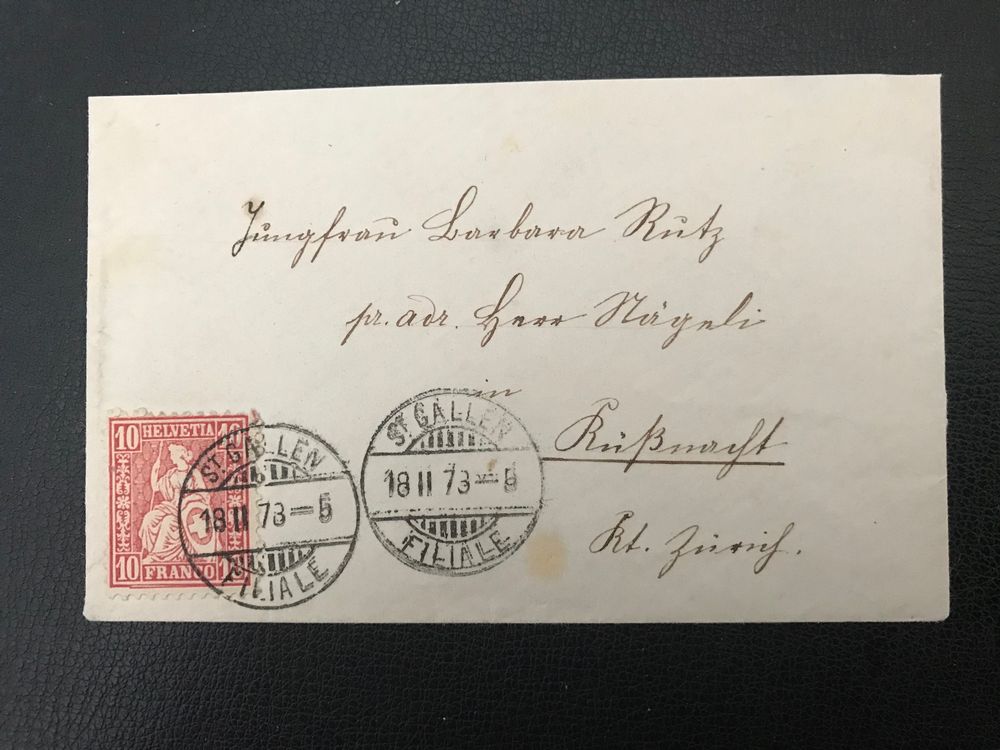 Jungfrau Barbara Rutz
pr. adr. Herr Nägeli
in
Küßnacht
Kt. Zürich.
10 HELVETIA 10
10 FRANCO 10
ST. GALLEN
18 II 73–5
FILIALE
ST. GALLEN
18 II 73–
FILIALE